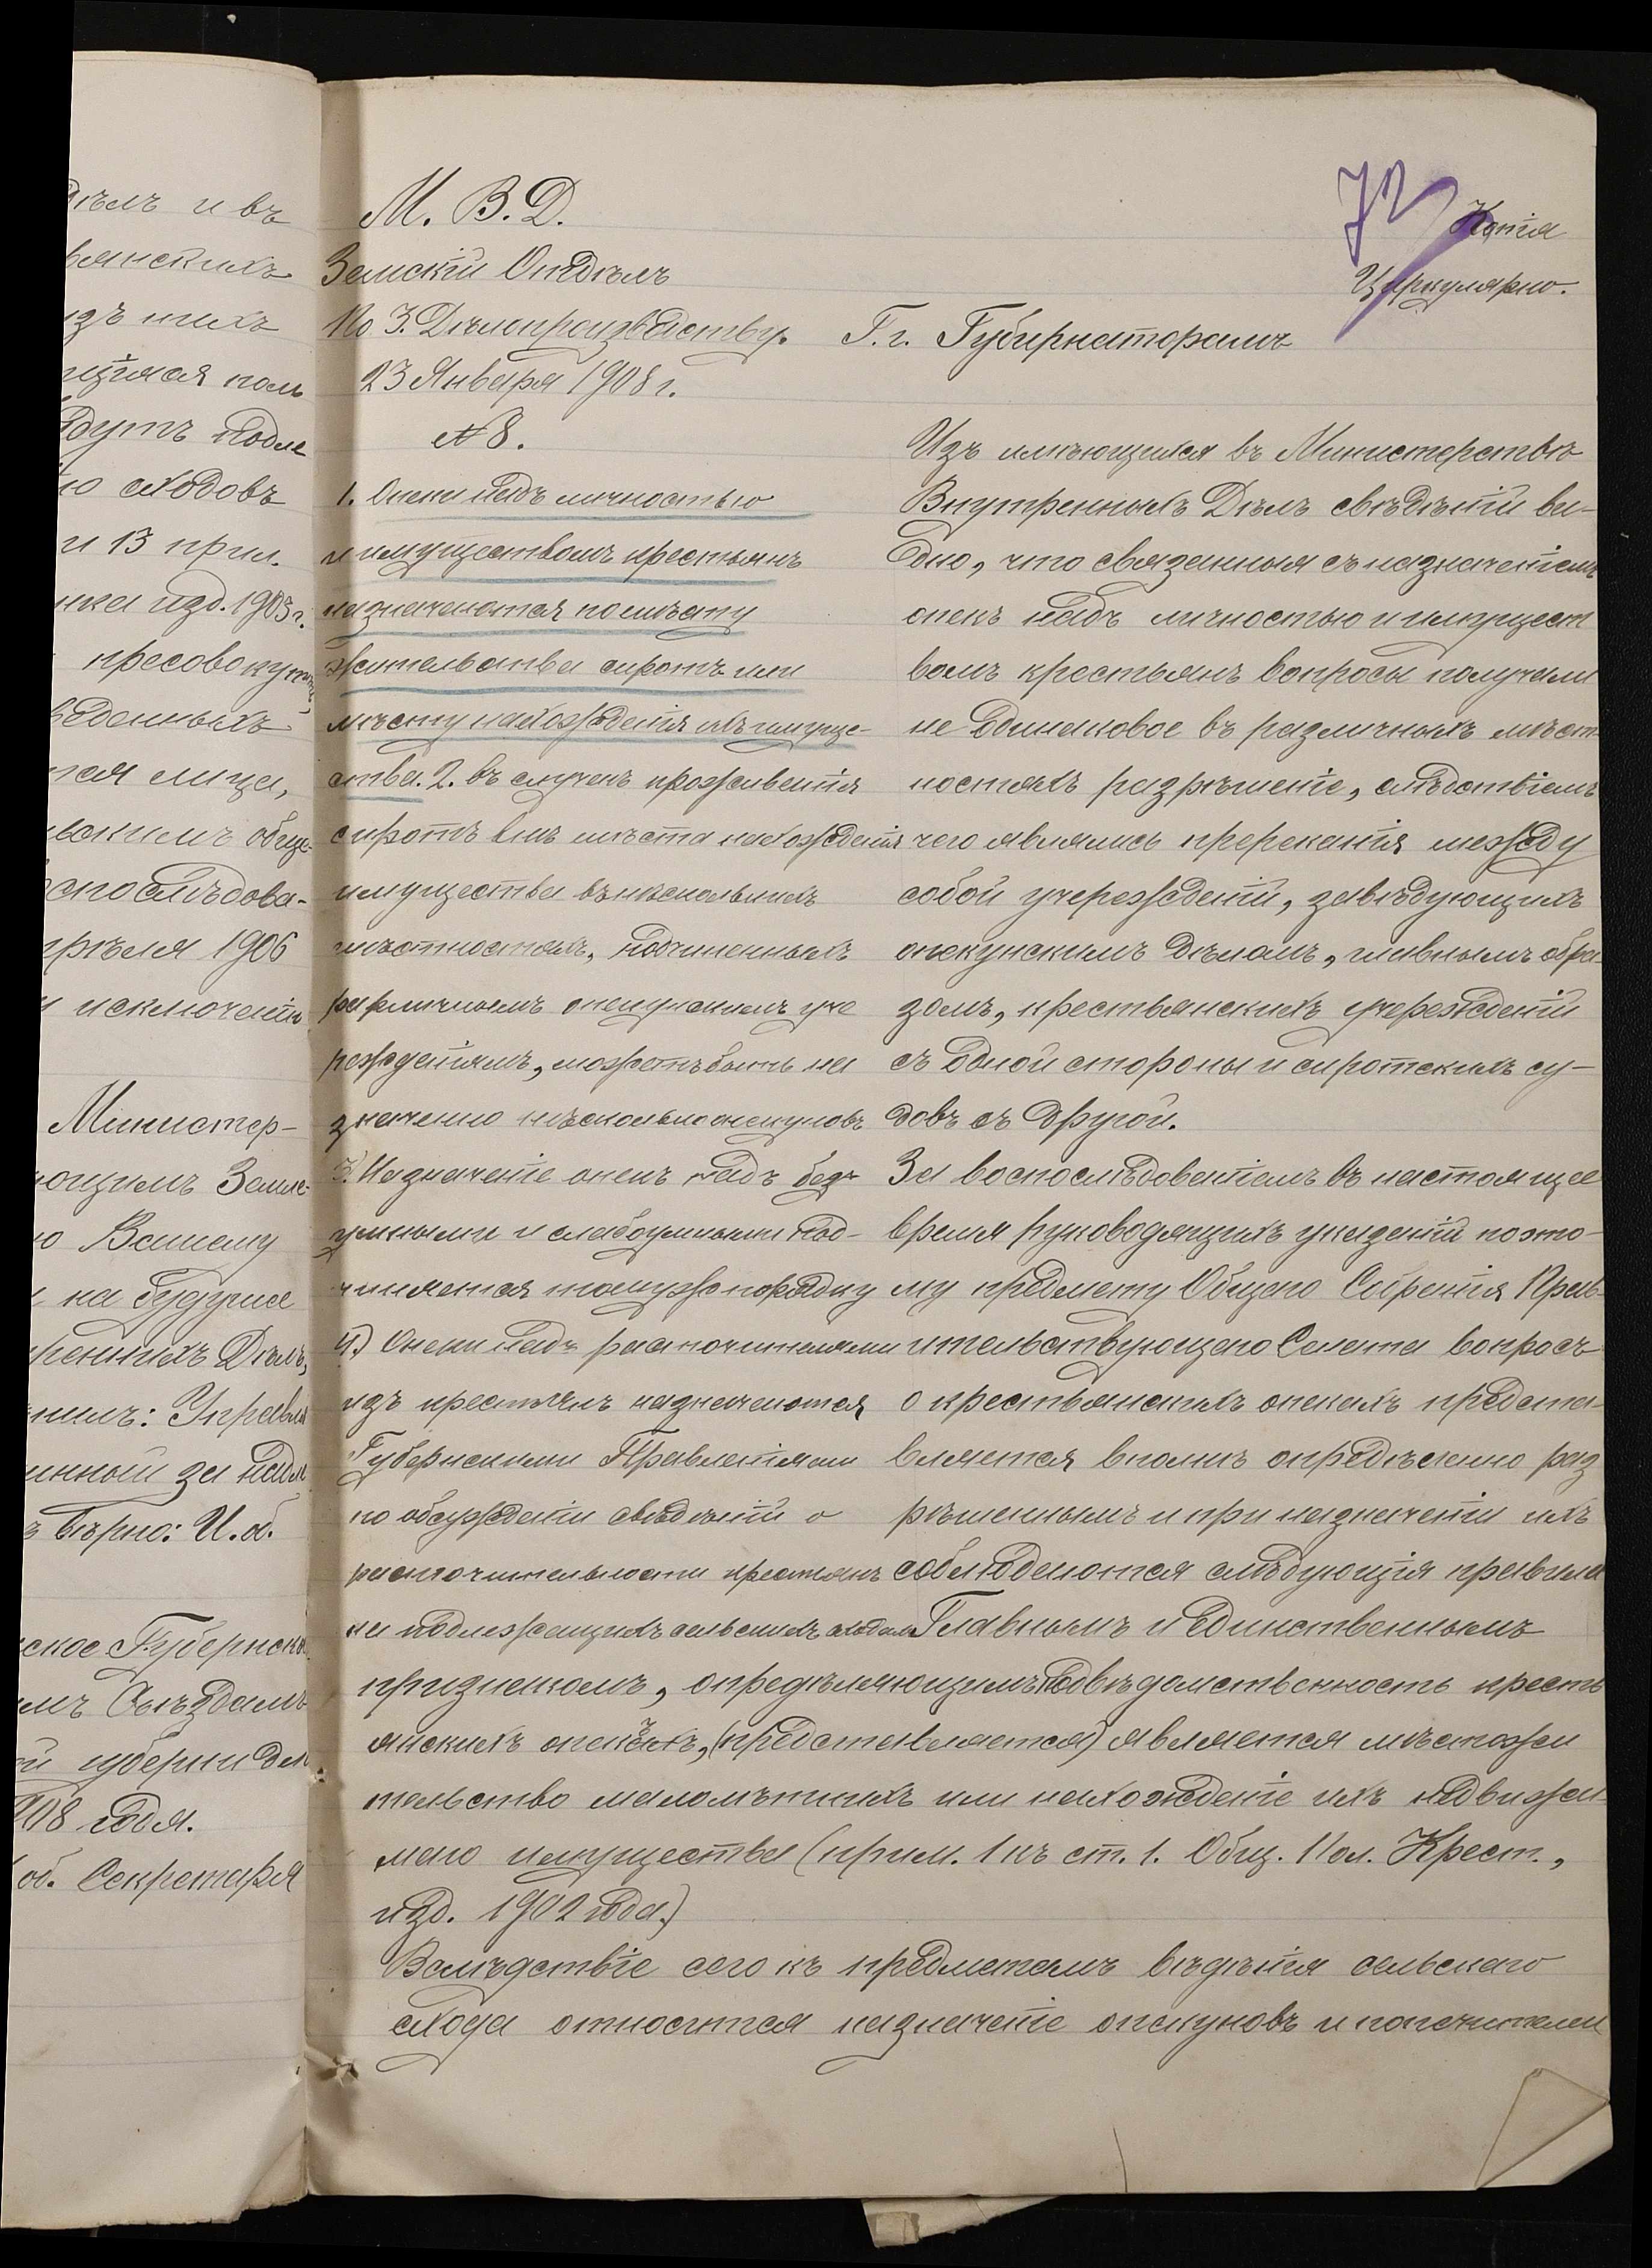 дѣлъ и въ
янскихъ
изъ нихъ
щіяся поль
дутъ подле
ію сходовъ
и 13 прил.
ика изд. 1903 г.
пресовокуп
веденныхъ
тся лица,
оспослѣдова-
прѣля 1906
и исключеніи
Министер-
ющимъ Земле-
ю Вашему
на будущее
треннихъ Дѣлъ,
нилъ: Управля
инной за надл
ъ вѣрно: И. об.
ское Губернско
имъ Съѣздамъ
й губерніи для
908 года.
об. Секретаря
М. В. Д.
Земскій Отдѣлъ
По 3. Дѣлопроизводству.
23 Января 1908 г.
№ 8.
1. Опеки надъ личностью
и имуществомъ крестьянъ
назначаются по мѣсту
жительства сиротъ или
мѣсту нахожденія ихъ имуще-
ства. 2. Въ случаѣ проживанія
сиротъ внѣ мѣста нахожденія
имущества въ нѣсколькихъ
мѣстностяхъ, подчиненныхъ
различнымъ опекунскимъ уче
режденіямъ, можетъ быть на
значено нѣсколько опекуновъ
3. Назначеніе опекъ надъ безъ
умными и слабоумными под-
чиняется тому же порядку
4) Опеки надъ расточителями
изъ крестьянъ назначаются
Губернскими Правленіями
по обсужденіи свѣдѣній о
расточительности крестьянъ
не подлежащихъ сельскимъ сходамъ
72
Копія
Циркулярно.
Г.г. Губернаторамъ
Изъ имѣющихся въ Министерствѣ
Внутреннихъ Дѣлъ свѣдѣній ви-
дно, что связанныя съ назначеніемъ
опекъ надъ личностью и имущест
вомъ крестьянъ вопросы получали
не одинаковое въ различныхъ мѣст-
ностяхъ разрѣшеніе, слѣдствіемъ
чего являлись пререканія между
собой учрежденій, завѣдующихъ
опекунскимъ дѣломъ, главнымъ обра-
зомъ, крестьянскихъ учрежденій
съ одной стороны и сиротскихъ су-
довъ съ другой.
За воспослѣдованіемъ въ настоящее
время руководящихъ указаній по это-
му предмету Общаго Собранія Прав-
ительствующаго Сената вопросъ
о крестьянскихъ опекахъ предста-
вляется вполнѣ опредѣленно раз
рѣшеннымъ и при назначеніи ихъ
соблюдаются слѣдующія правила
Главнымъ и единственнымъ
признакомъ, опредѣляющимъ подвѣдомственность кресть
янскихъ опекъ, (представляется) является мѣстожи
тельство малолѣтнихъ или нахожденіе ихъ недвижи-
маго имущества (прим. 1 къ ст. 1. Общ. Пол. Крест.,
изд. 1902 года.)
Вслѣдствіе сего къ предметамъ вѣдѣнія сельскаго
схода относится назначеніе опекуновъ и попечителей